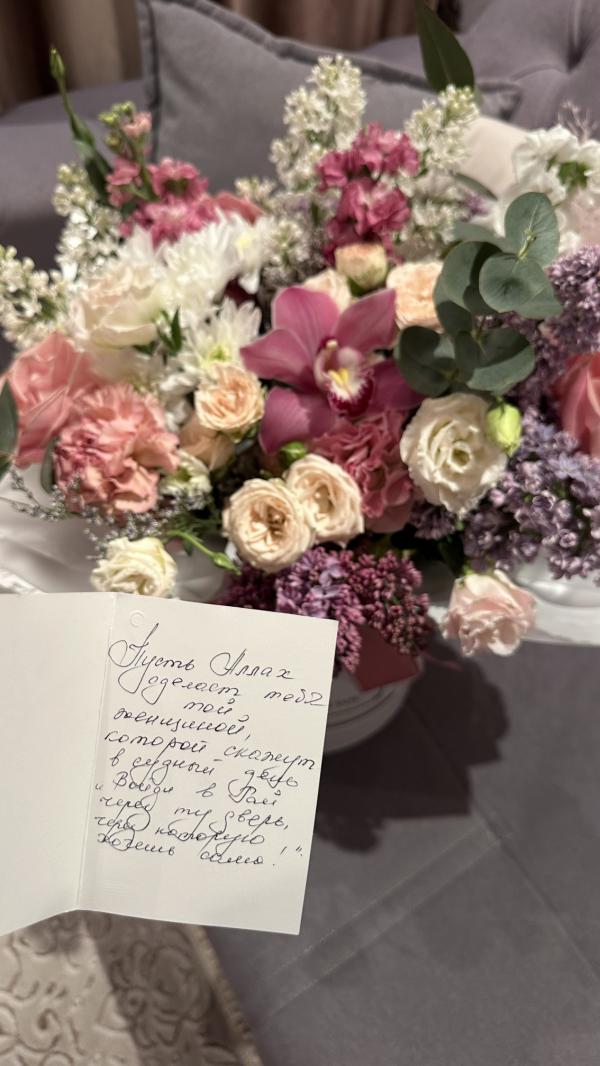 Пусть Аллах
сделает тебя
той
женщиной,
которой скажут
в судный день
„ Войди в Рай
через ту дверь,
через которую
хочешь сама!“.